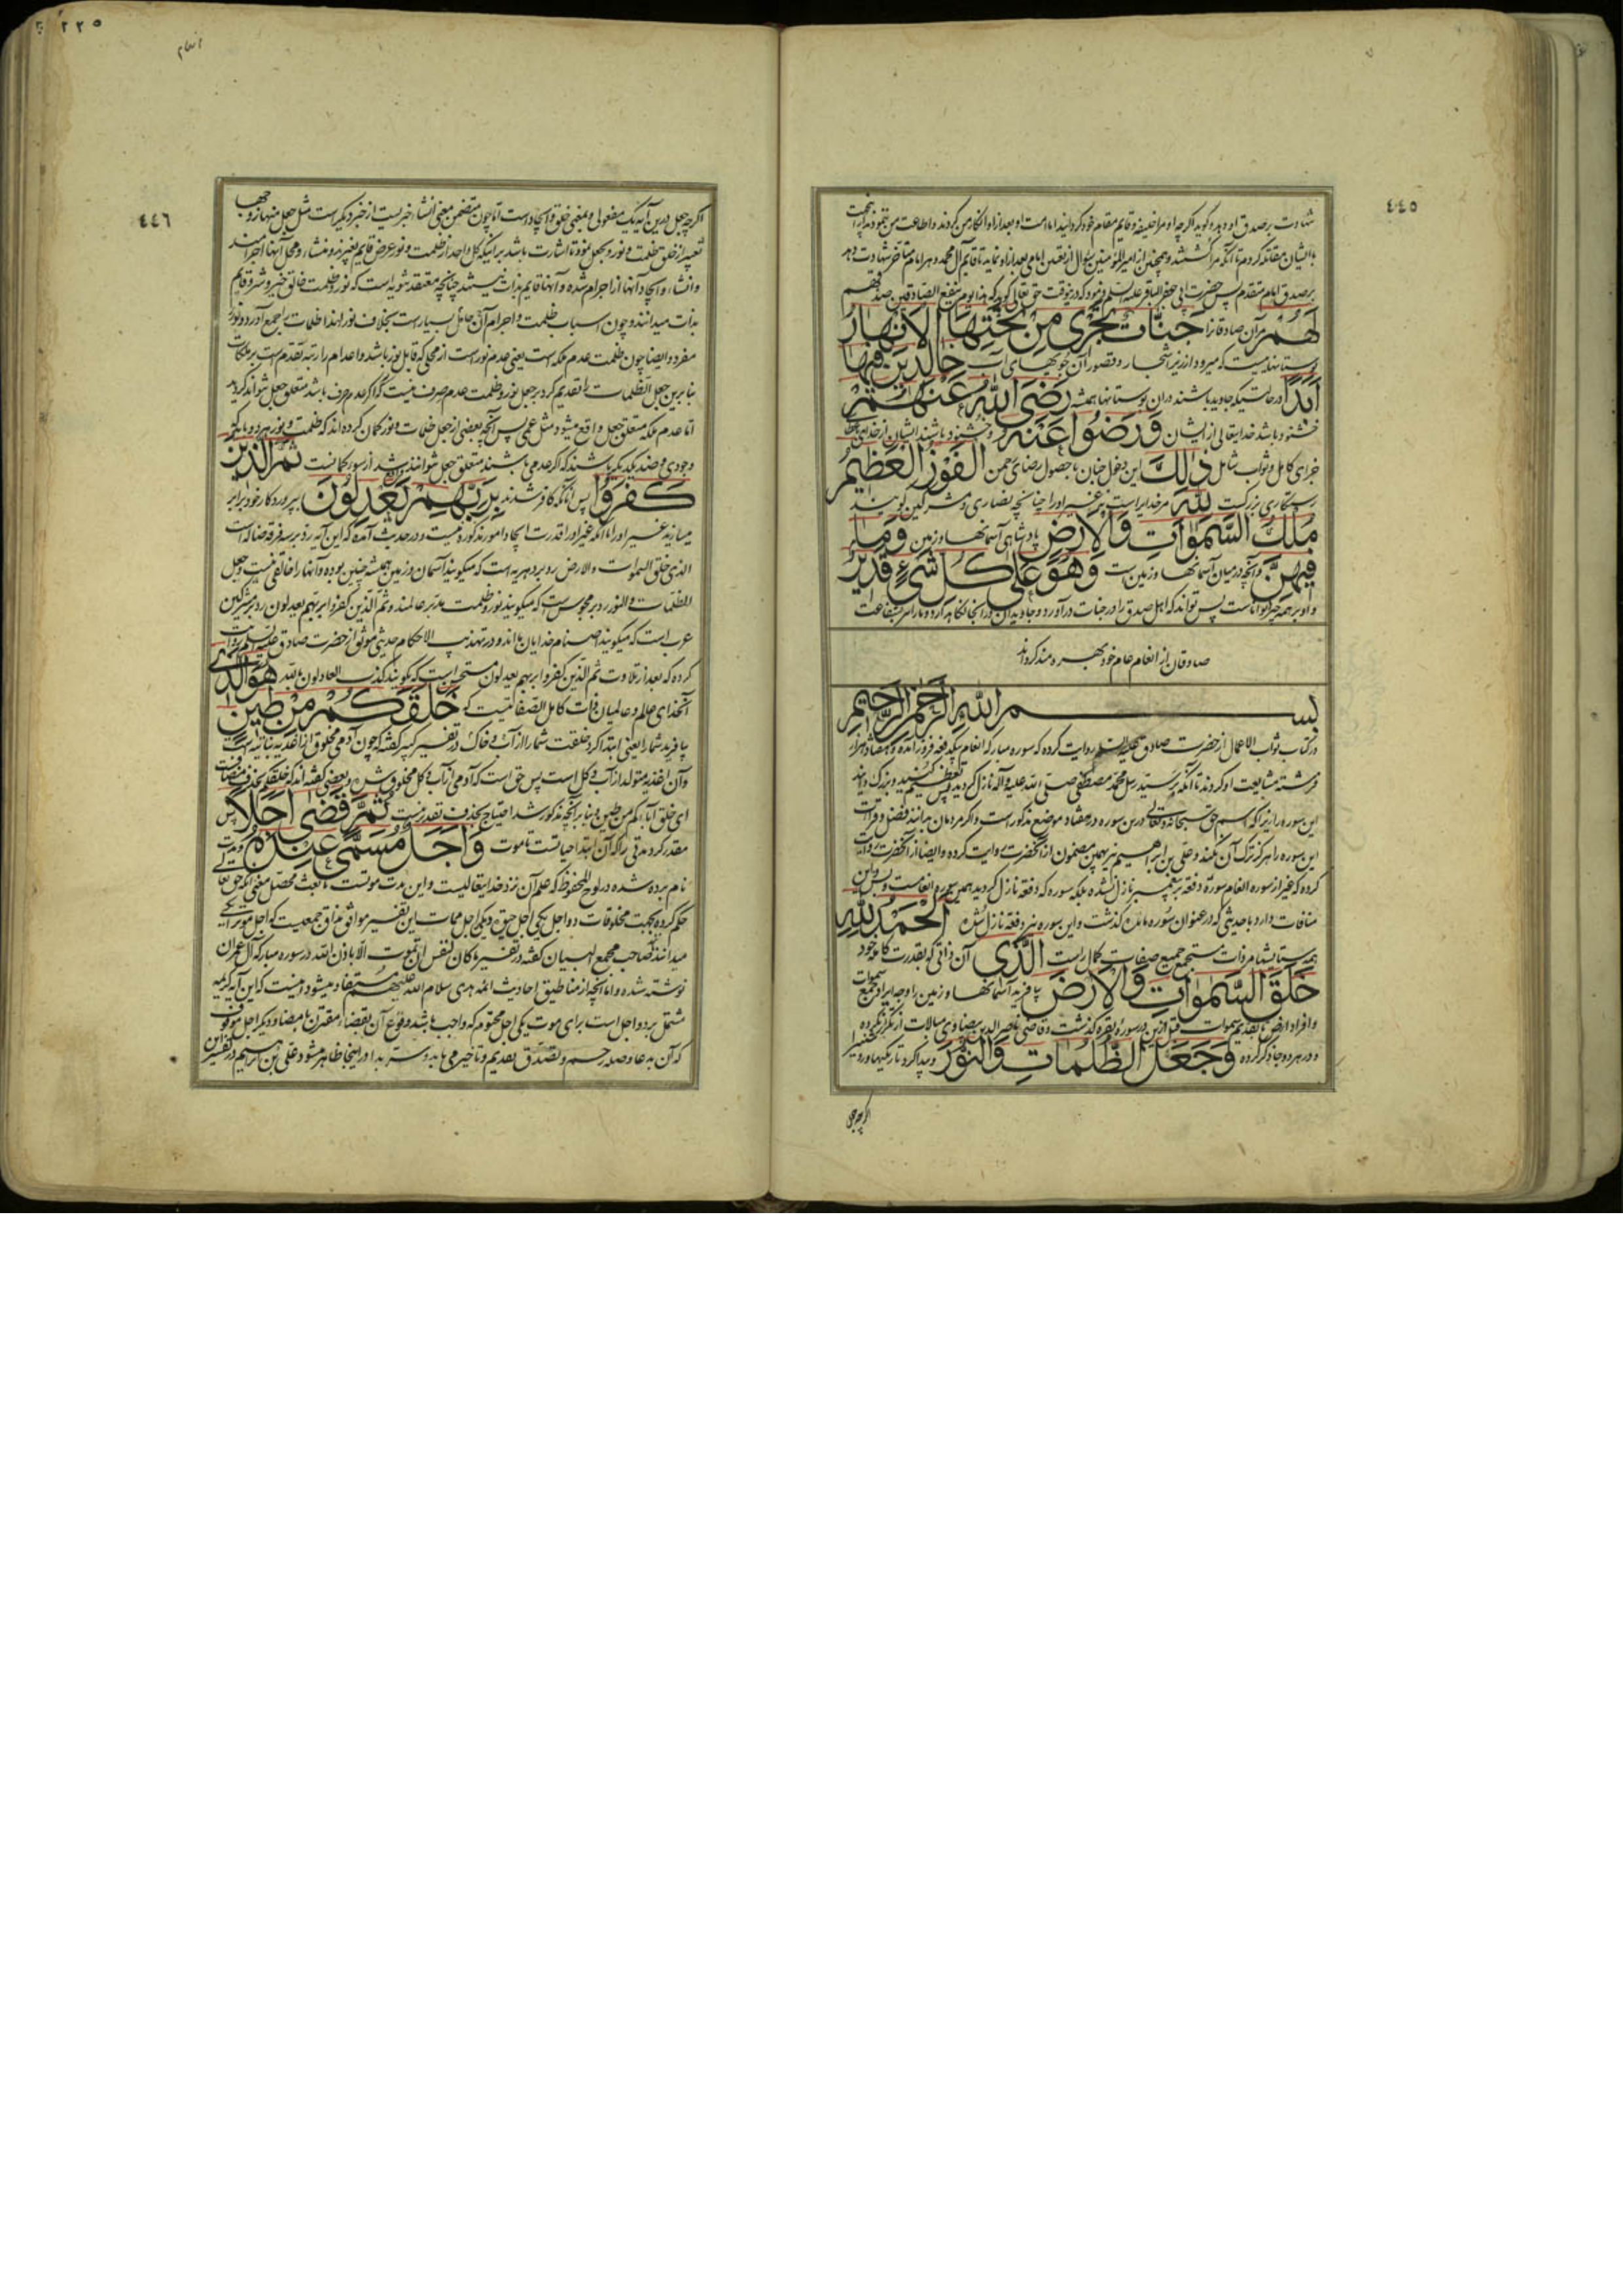 ٤٤٥
شهادت بر صدق او دهد و گوید اگر چه او مرا خلیفه و قایم مقام خود گردانید اما امت او بعد از او انکار من کردند و اطاعت من ننمودند
با ایشان مقاتله کردم تا آنکه مرا کشتند و همچنین از امیر المؤمنین سؤال از تعیین امامی بعد از او نماید تا قایم آل محمد و هر امام متأخر شهادت دهد
بر صدق امام متقدم پس حضرت ابی جعفر الباقر علیه السلم فرمود که در ینوقت حق تعالی گوید که هذا یوم ینفع الصادقین صدقهم
لَهُمْ مر آن صادقانرا جَنَّاتٌ تَجْرِی مِنْ تَحْتِهَا الْاَنْهَارُ
بوستانهائیست که میرود از زیر اشجار و قصور آن جویهای آب خَالِدِینَ فِیهَا
اَبَدًا در حالتیکه جاوید باشند در آن بوستانها همیشه رَضِیَ اللهُ عَنْهُمْ
خشنود باشد خدایتعالی از ایشان وَ رَضُوا عَنْهُ و خشنود باشند ایشان از خدای
جزای کامل و ثواب شامل ذَالِكَ این دخل جنان با حصول رضای رحمن الْفَوْزُ الْعَظِیمُ
رستکاری بزرکست لِلّٰهِ مر خدایراست نه غیر او را چنانچه نصاری و مشرکین گویند
مُلْكُ السَّمٰوَاتِ وَالْاَرْضِ پادشاهی آسمانها و زمین وَمَا
فِیهِنَّ و آنچه در میان آسمانها و زمین است وَهُوَ عَلٰی كُلِّ شَیْءٍ قَدِیرٌ
و او بر همه چیز تواناست پس تواند که اهل صدق را در جنات در آورد و جاویدان در آنجا نگاهدارد و ما را بشفاعت
صادقان از انعام عام خود بهره مند گرداند
بسم الله الرحمن الرحیم
در کتاب ثواب الاعمال از حضرت صادق علیه السلم روایت کرده که سوره مبارکه انعام بیکدفعه فرود آمده و هفتاد هزار
فرشته مشایعت او کردند تا آنکه بر سید رسل محمد مصطفی صلی الله علیه و آله نازل گردید پس تعظیم کنید و بزرک دانید
این سوره را زیرا که اسم حق سبحانه و تعالی درین سوره در هفتاد موضع مذکور است و اگر مردمان بدانند فضل قرائت
این سوره را هرگز ترک آن نکنند و علی بن ابراهیم نیز بهمین مضمون از آنحضرت روایت کرده و ایضا از آنحضرت روایت
کرده که غیر از سوره انعام سوره دفعه بر پیغمبر نازل نشده بلکه سوره که دفعه نازل گردید همین سوره انعامست و بس و این
منافات دارد با حدیثی که در عنوان سوره مائده گذشت و این سوره نیز دفعة نازل شده اَلْحَمْدُ لِلّٰهِ
همه ستایشها مر ذات مستجمع جمیع صفات کمال راست الَّذِی آن ذاتی که بقدرت کامله خود
خَلَقَ السَّمٰوَاتِ وَالْاَرْضَ بیافرید آسمانها و زمین را وجه ایراد بجمع سموات
و افراد ارض با تقدیم سموات قبل ازین در سوره بقره گذشت و قاضی ناصر الدین بیضاوی مبالات از تکرار نکرده
و در هر دو جا ذکر کرده وَجَعَلَ الظُّلُمَاتِ وَالنُّورَ و پیدا کرد تاریکیها و روشنی را
اگر چه جعل
٢٢٥
انعام
٤٤٦
اگر چه جعل درین آیه یک مفعولی و بمعنی خلق و ایجاد است اما چون متضمن معنی انشاء چیزیست از چیز دیگر است مثل جعل منها زوجها
تعبیر از خلق ظلمت و نور بجعل نمود تا اشارت باشد بر اینکه کل واحد از ظلمت و نور عرض قایم بغیرند و منشاء و محل آنها اجرامند
و انشاء و ایجاد آنها از اجرام شده و آنها قایم بذات نیستند چنانچه معتقد ثنویه است که نور و ظلمت خالق خیر و شر و قایم
بذات میدانند و چون اسباب ظلمت و اجرام آن حامل بسیار است بخلاف نور لهذا ظلمات را جمع آورد و نور را
مفرد و ایضا چون ظلمت عدم ملکه است یعنی عدم نور است از محلی که قابل نور باشد و اعدام را رتبه تقدم است بر ملکات
بنابرین جعل الظلمات را تقدیم کرد بر جعل نور و ظلمت عدم صرف نیست که اگر عدم صرف باشد متعلق جعل نتواند گردید
اما عدم ملکه متعلق جعل واقع میشود مثل عمی پس آنچه بعضی از جعل ظلمات و نور گمان کرده اند که ظلمت و نور هر دو باید که
وجودی و ضد یکدیگر باشند که اگر عدمی باشند متعلق جعل نتوانند شد از سوء گمانست ثُمَّ الَّذِینَ
كَفَرُوا پس آنانکه کافر شدند بِرَبِّهِمْ یَعْدِلُونَ بپروردکار خود برابر
میسازند غیر او را با آنکه غیر او را قدرت ایجاد امور مذکوره نیست و در حدیث آمده که این آیه رد بر سه فرقه ضاله است
الذی خلق السموات والارض رد بر دهریه است که میگویند آسمان و زمین همیشه چنین بوده و آنها را خالقی نیست و جعل
الظلمات والنور رد بر مجوس است که میگویند نور و ظلمت مدبر عالمند و ثم الذین کفروا بربهم یعدلون رد بر مشرکین
عرب است که میگویند اصنام خدایان ما اند و در تهذیب الاحکام حدیثی موثق از حضرت صادق علیه السلم روایت
کرده که بعد از تلاوت ثم الذین کفروا بربهم یعدلون مستحب است که بگویند کذب العادلون بالله هُوَ الَّذِی
آنخدای عالم و عالمیان ذات کامل الصفاتیست که خَلَقَكُمْ مِنْ طِینٍ
بیافرید شما را یعنی ابتدا کرد خلقت شما را از آب و خاک در تفسیر کبیر گفته که چون آدمی مخلوق از اغذیه نباتیه است
و آن اغذیه متولد از آب و گل است پس حق است که آدمی از آب و گل مخلوق شد و بعضی گفته اند که خلقکم بحذف مضافست
ای خلق آباءکم من طین و بنا بر آنچه مذکور شد احتیاج بحذف و تقدیر نیست ثُمَّ قَضٰی اَجَلًا پس
مقدر کرد مدتی را که آن ابتداء حیاتست تا موت وَاَجَلٌ مُسَمًّی عِنْدَهُ و مدت
نام برده شده در لوح المحفوظ که علم آن نزد خدایتعالیست و این مدت موتست تا بعث محصل معنی آنکه حق تعالی
حکم کرده بجهت مخلوقات دو اجل یکی اجل حیوة و دیگری اجل ممات این تفسیر موافق مذاق جمعیست که اجل موت را یکی
میدانند صاحب مجمع البیان گفته در تفسیر ما کان لنفس ان تموت الا باذن الله در سوره مبارکه آل عمران
نوشته شده و اما آنچه از مناطیق احادیث ائمه هدی سلام الله علیهم مستفاد میشود اینست که این آیه کریمه
مشتمل بر دو اجل است برای موت یکی اجل محتوم که واجب باشد وقوع آن بقضاء مقترن بامضا و دیگر اجل موقوف
که آن بدعا و صله رحم و تصدق تقدیم و تاخیر می یابد و ستر بدا در اینجا ظاهر میشود علی بن ابراهیم در تفسیر این